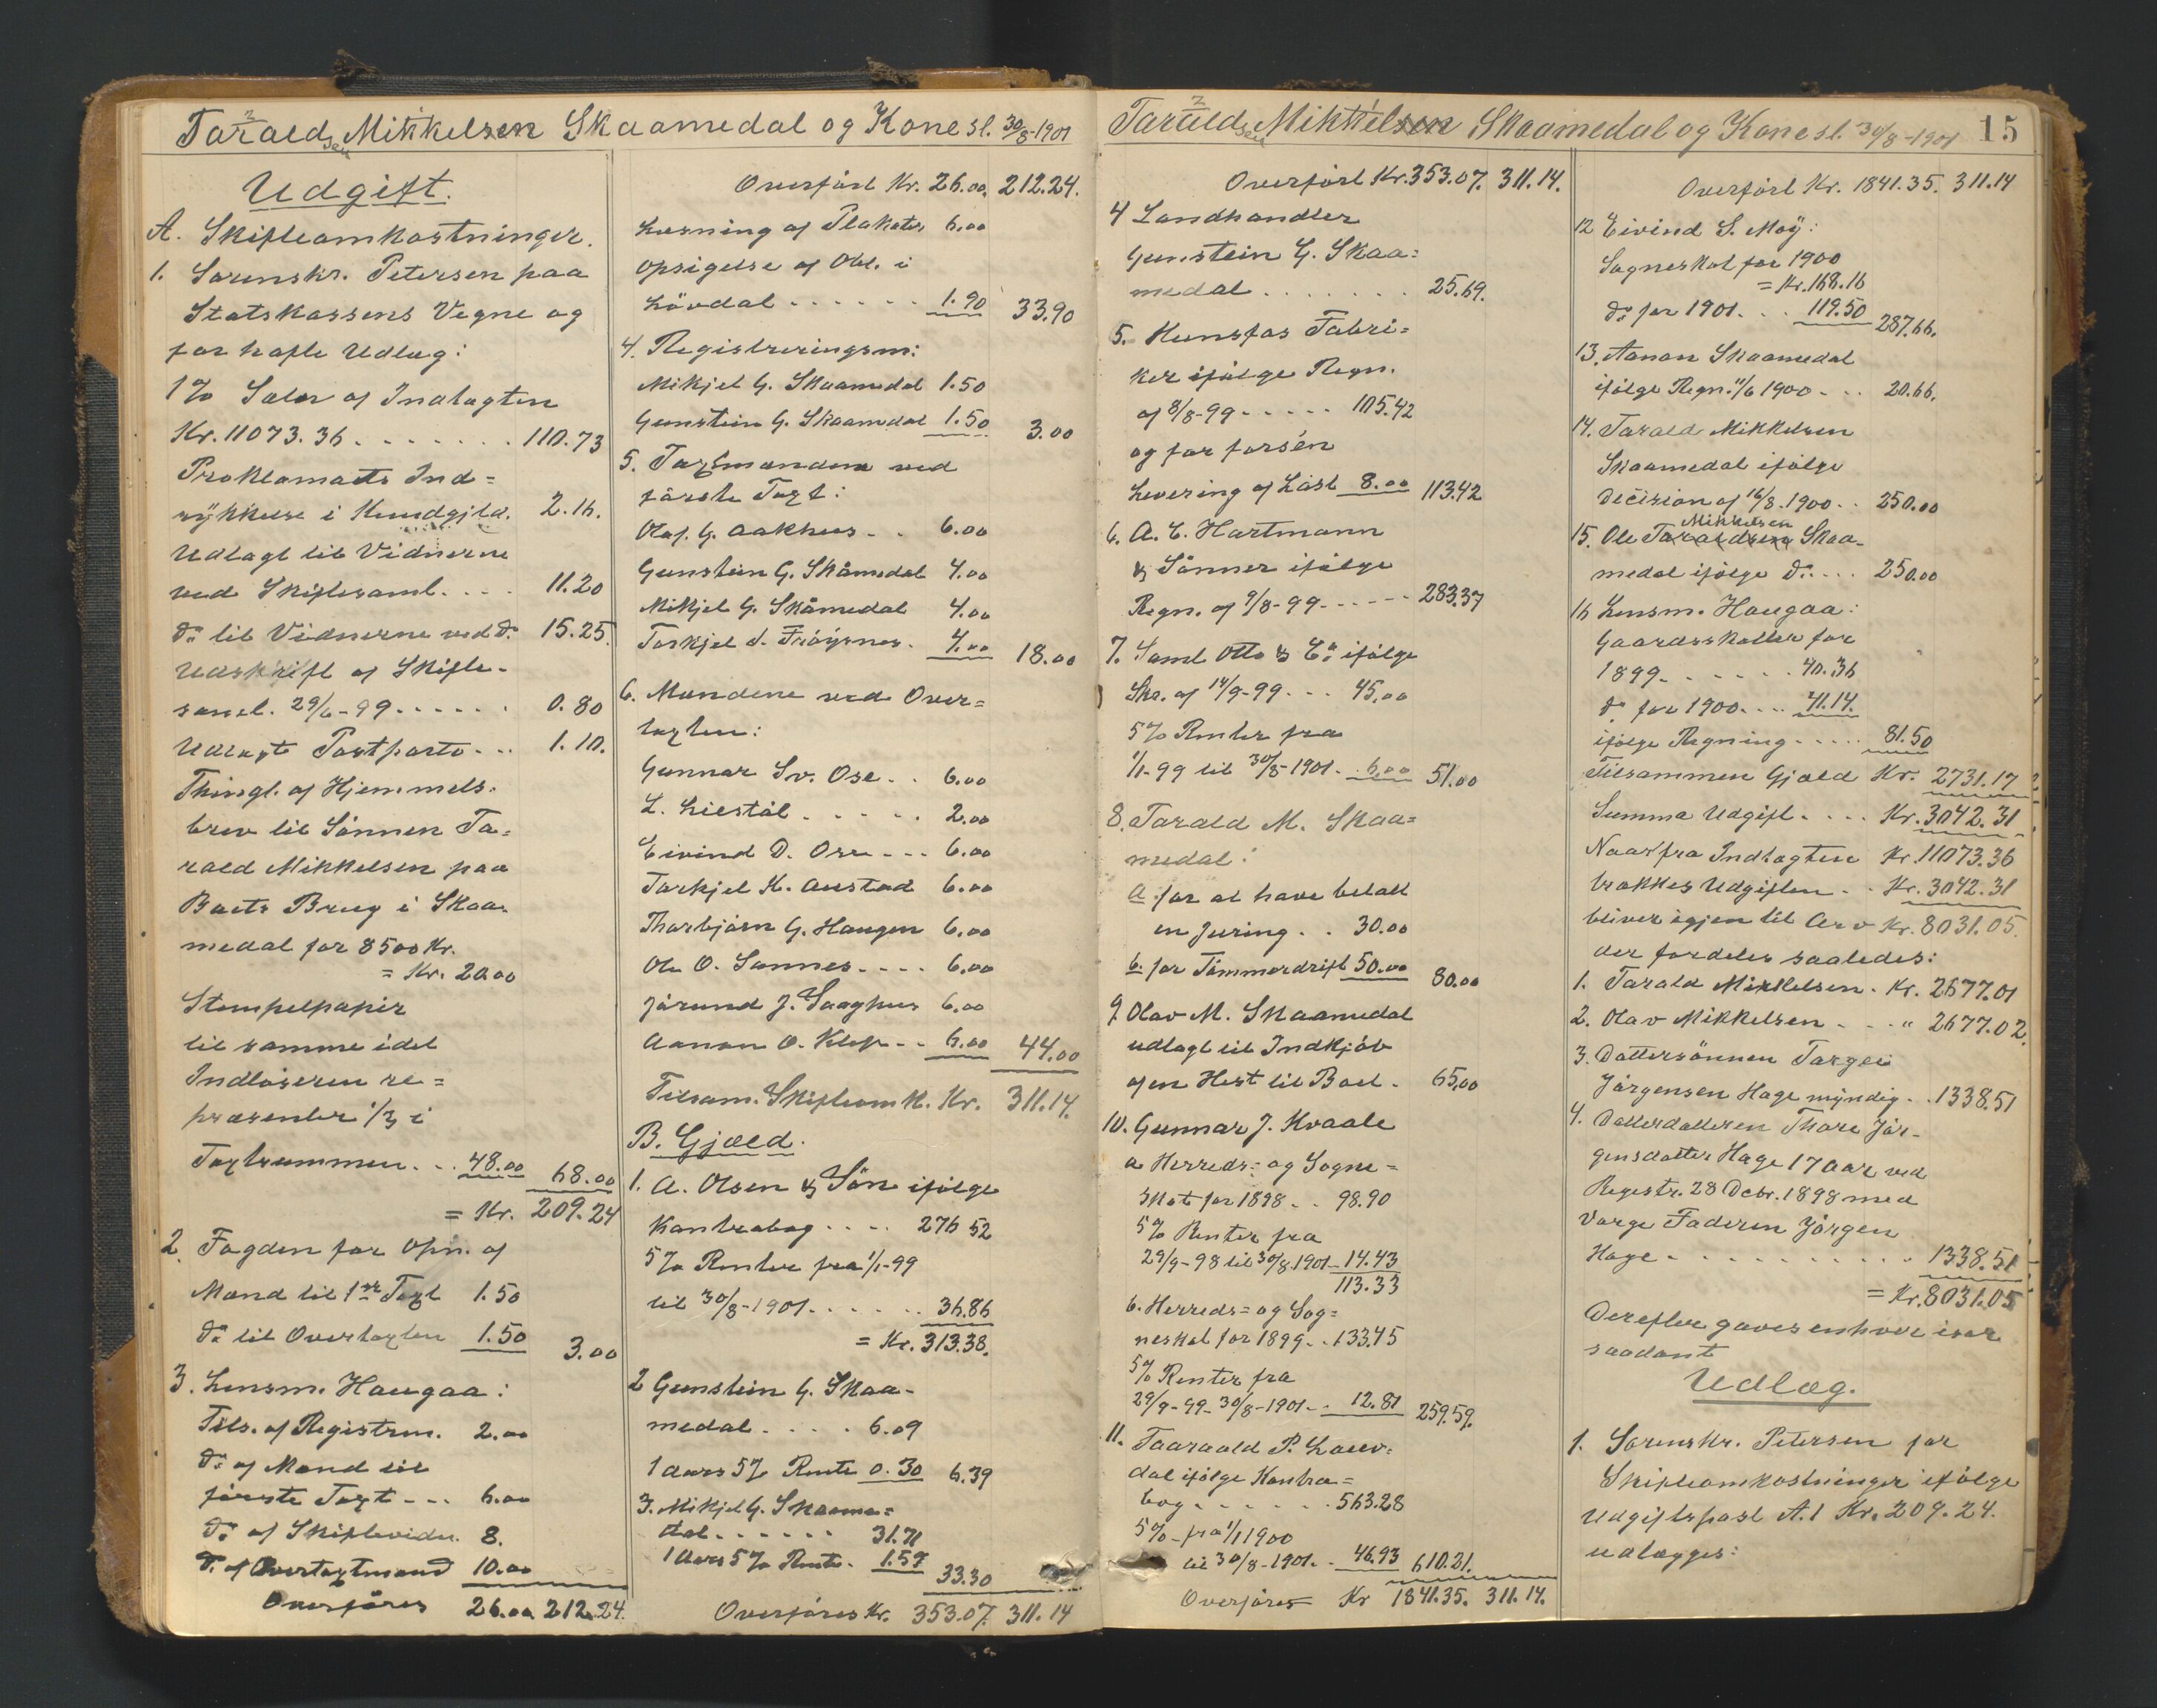 Tarald Mikkelsen Skaamedal og Kone sl. 30/8-1901
Udgift.
A. Skifteomkostninger.
1. Sorenskr. Petersen paa
Statskassens Vegne og
for havte Udlæg:
1% Salær af Indtægten
Kr. 11073.36 . . . . . . . 110.73
Proklamaets Ind=
rykkelse i Kundgjéld. 2.16.
Udlagt til Vidnerne
ved Skiftesaml. . . . 11.20
do til Vidnerne ved do 15.25.
Udskrift af Skifte-
saml. 29/6-99 . . . . . . 0.80
Udlagt Postporto . . . 1.10.
Thingl. af Hjemmels-
brev til Sønnen Ta=
rald Mikkelsen paa
Boets Brug i Skaa-
medal for 8500 Kr.
= Kr. 20.00
Stempelpapir
til samme idet
Indløseren re=
præsenter 1/3 i
Taxtsummen . . . 48.00 68.00
= Kr. 209.24
2. Fogden for Opn. af
Mænd til 1ste Taxt 1.50
do til Overtaxten 1.50 3.00
3. Lensm. Haugaa:
Tils. af Registrm. 2.00
do af Mænd til
første Taxt - - - 6.00
do af Skiftevidn. 8.
do af Overtaxtmænd 10.00
Overføres 26.00 212.24.
Overført Kr. 26.00. 212.24.
Læsning af Plakater 6.00
Opsigelse af Obl. i
Løvdal . . . . . . . 1.90 33.90
4. Registreringsm:
Mikjel G. Skaamedal 1.50
Gunstein G. Skaamedal 1.50 3.00
5. Taxtmændene ved
første Taxt:
Olaf. G. Aakhus . . . 6.00
Gunstein G. Skåmedal 4.00
Mikjel G. Skåmedal 4.00
Torkjel S. Frøysnes. 4.00 18.00
6. Mændene ved Over=
taxten:
Gunnar Sv. Ose . . 6.00
L. Liestøl . . . . . 2.00
Eivind D. Ose - - - 6.00
Torkjel K. Austad 6.00
Thorbjørn G. Haugen 6.00
Ole O. Sannes . . . . 6.00
Jørund J. Saaghus 6.00
Aanon O. Klep - - 6.00 44.00
Tilsam. Skifteomk. Kr. 311.14.
B. Gjæld.
1. A. Olsen & Søn ifølge
Kontrabog . . . . 276 52
5% Renter fra 1/1-99
til 30/8-1901 . . . . . . 36.86
= Kr. 313.38.
2 Gunstein G. Skaa-
medal. . . . 6.09
1 Aars 5% Rente 0.30 6.39
3. Mikjel G. Skaame=
dal. . . . . . 31.71
1 Aars 5% Rente. 1.59 33.30
Overføres Kr. 353.07. 311.14
Tarald Mikkelsen Skaamedal og Kone sl. 30/8-1901 15
Overført Kr. 353.07. 311.14.
4 Landhandler
Gunstein G. Skaa=
medal . . . . . . . 25.69.
5. Hunsfos Fabri=
ker ifølge Regn.
af 8/8-99 - - - - - 105.42
og for forsén
Levering af Last 8.00 113.42
6. A. C. Hartmann
& Sønner ifølge
Regn. af 9/8-99 - - - - - 283.37
7. Saml Otto & Co ifølge
Skr. af 14/9-99 - - - 45.00
5% Renter fra
1/1-99 til 30/8-1901 - 6.00 51.00
8. Tarald M. Skaa=
medal:
a. for at have betalt
en Juring . . 30.00
b. for Tømmerdrift 50.00 80.00
9. Olav M. Skaamedal
udlagt til Indkjøb
af en Hest til Boet . 65.00
10. Gunnar J. Kvaale
a Herreds- og Sogne=
skat for 1898 . . 98.90
5% Renter fra
29/9-98 til 30/8 1901 - 14.43
113.33
b. Herreds= og Sog=
neskat for 1899 . . 133.45
5% Renter fra
29/9-99 - 30/8-1901 . . 12.81 259.59.
11. Taaraald P. Lauv-
dal ifølge Kontra=
bog . . . . . . . 563.28
5% - fra 1/1 1900
til 30/8-1901 . . 46.93 610.21.
Overføres Kr 1841.35. 311.14.
Overført Kr. 1841.35. 311.14
12 Eivind S. Moy:
Sogneskat for 1900
= Kr. 168.16
do for 1901 . . . 119.50 287.66.
13. Aanon Skaamedal
ifølge Regn. 11/6 1900 - . . 20.66.
14. Tarald Mikkelsen
Skaamedal ifølge
Decision af 16/8 1900 . . 250.00
15. Ole Mikkelsen Skaa-
medal ifølge do . . . . 250.00
16 Lensm. Haugaa:
Gaardsskatter for
1899 - . . . . . . 40.36
do for 1900 . . . . 41.14.
ifølge Regning . . . . . 81.50
Tilsammen Gjæld Kr. 2731.17
Summa Udgift . . . . Kr. 3042.31
Naar fra Indtægten Kr. 11073.36
trækkes Udgiften . . Kr. 3042.31
bliver igjen til Arv Kr. 8031.05.
der fordeles saaledes:
1. Tarald Mikkelsen . Kr. 2677.01
2. Olav Mikkelsen . . . „ 2677.02.
3. Dattersønnen Targei
Jørgensen Hage myndig . . 1338.51
4. Datterdatteren Thore Jør-
gensdatter Hage 17 Aar ved
Registr. 28 Decbr. 1898 med
Verge Faderen Jørgen
Hage . . . . . . . . . . 1338.51
= Kr. 8031.05
Derefter gaves enhver især
saadant
Udlæg.
1. Sorenskr. Petersen for
Skifteomkostninger ifølge
Udgiftspost A.1 Kr. 209.24.
udlægges: